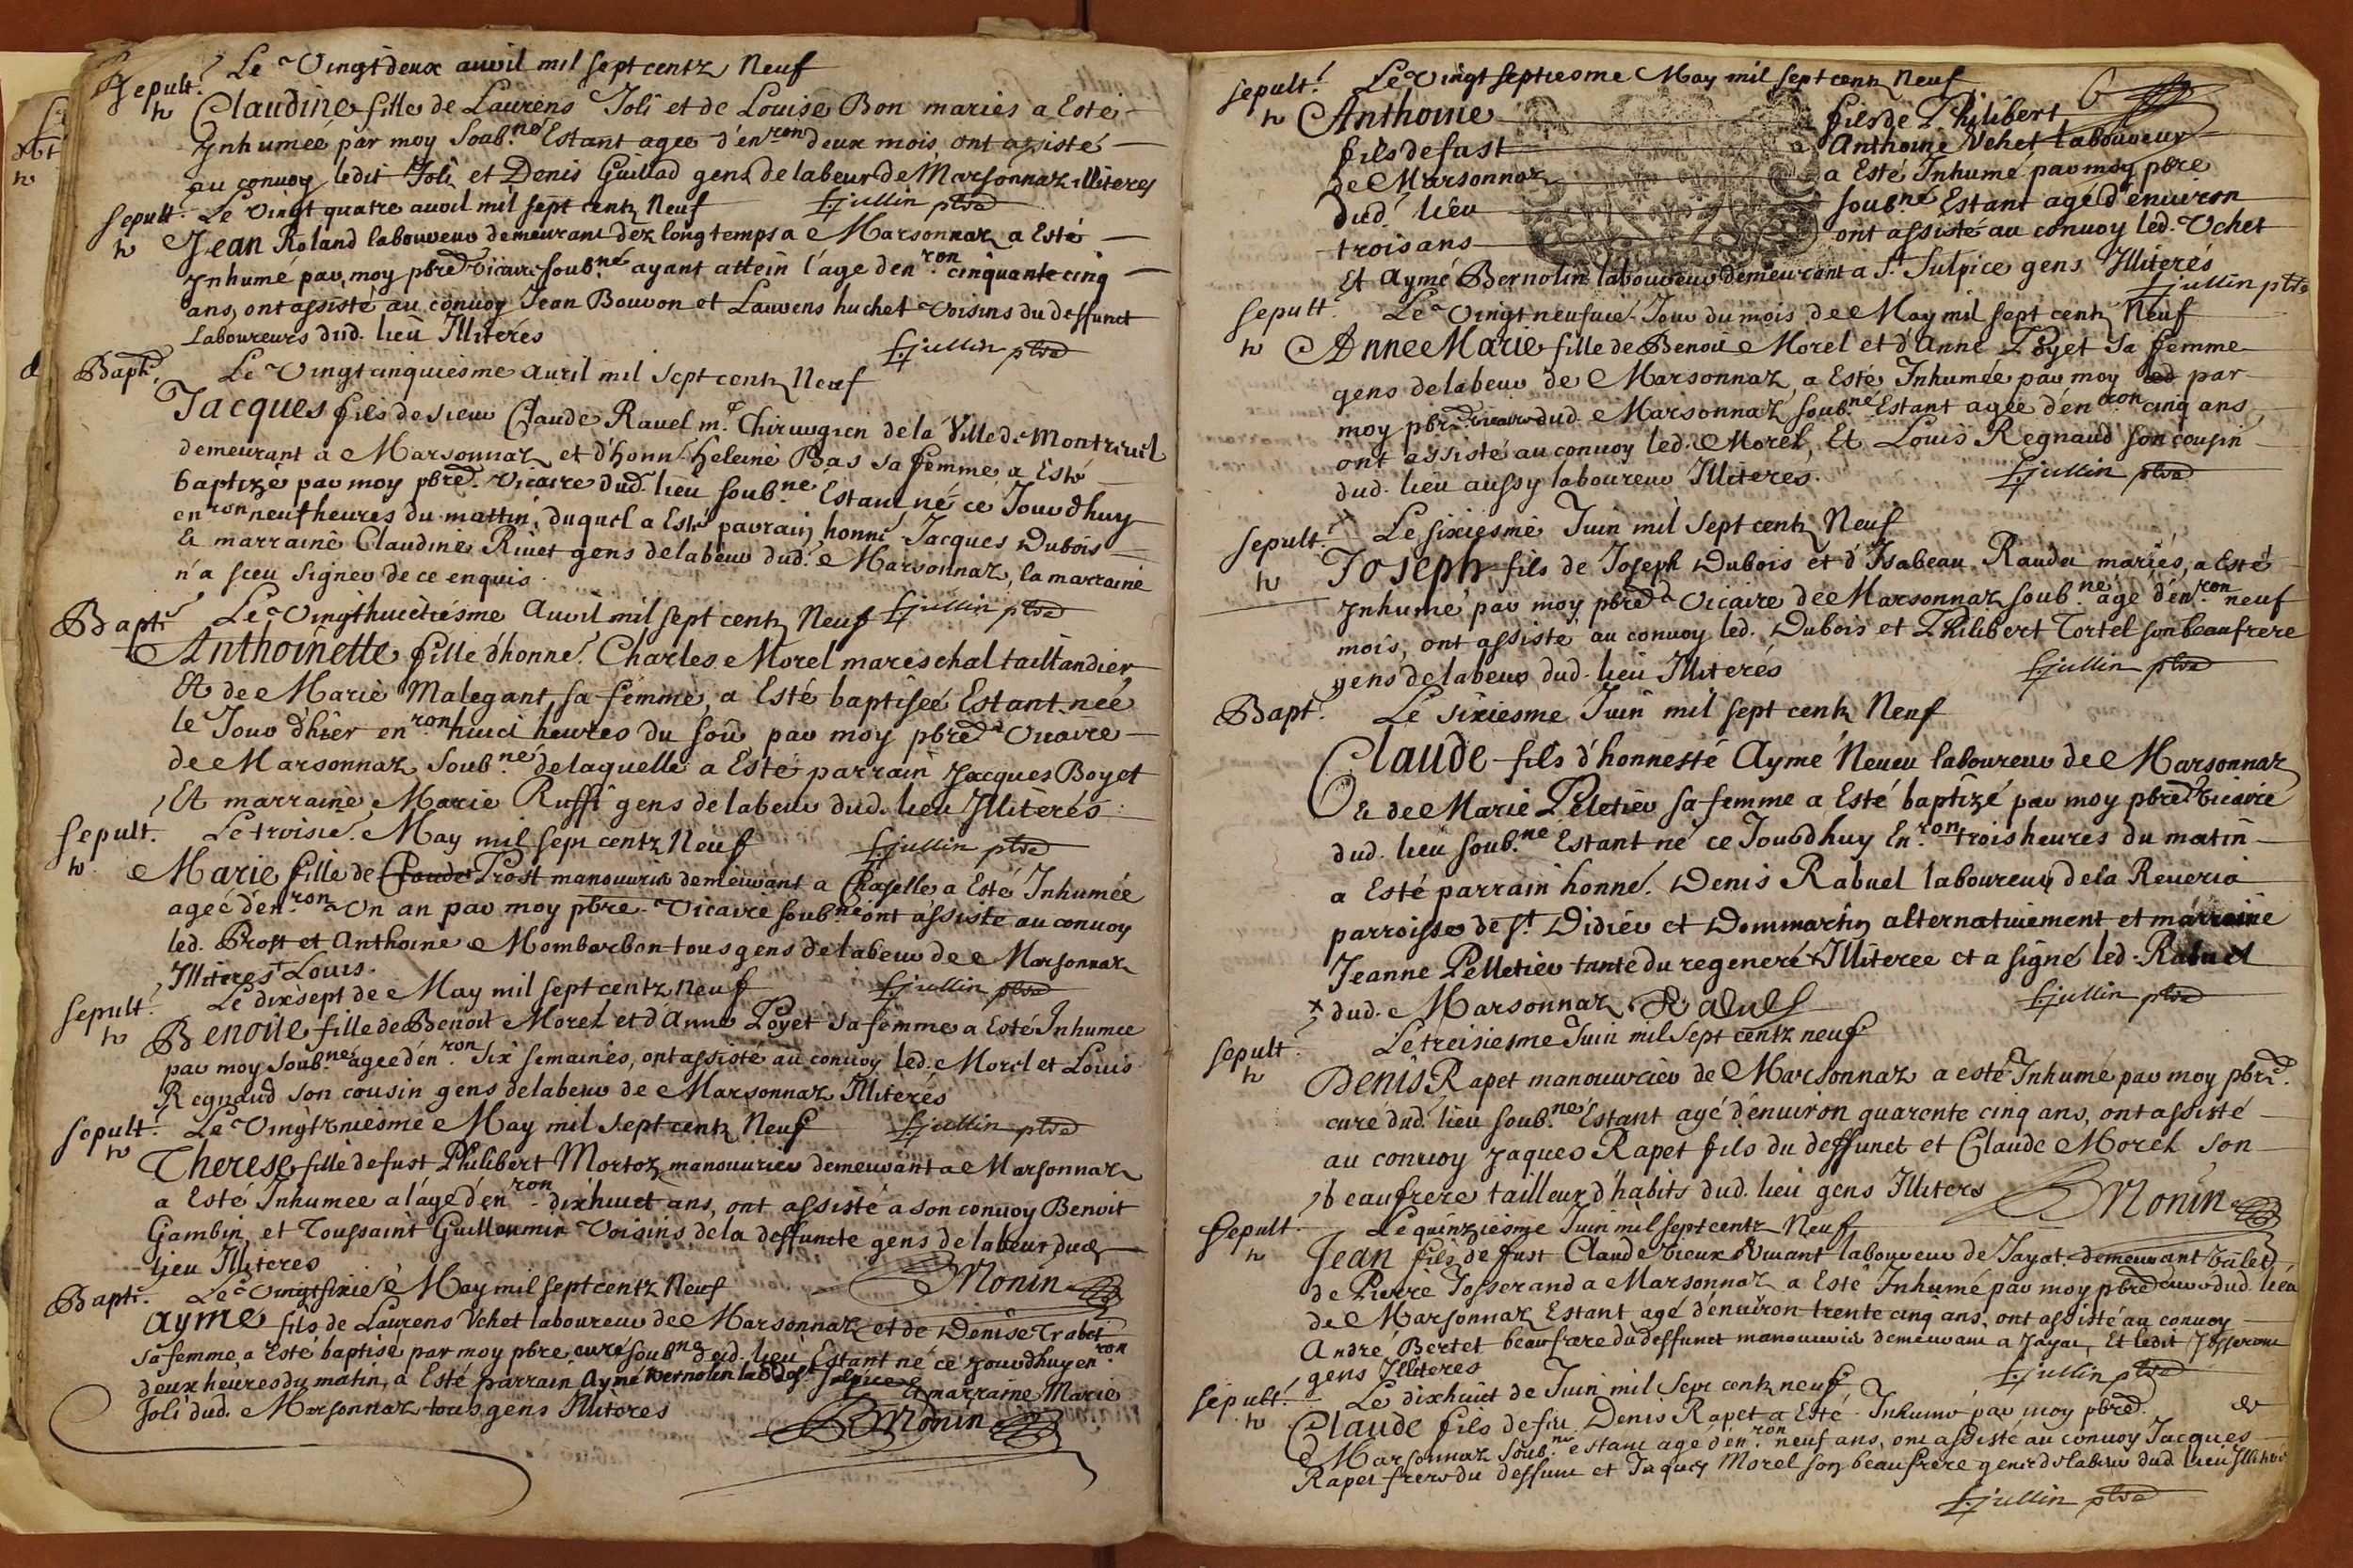 Sepult. Le Vingtdeux avvil mil sept centz Neuf
h Claudine fille de Laurens Joli et de Louise Bon mariés a Esté
Inhumeé par moy Soub.né Estant ageé d'én.ron deux mois ont assisté
au convoy ledit Joli et Denis Guillad gens de labeur de Marsonnaz illiteres
Fjullin ptre
Sepult. Le vingt quatre avvil mil sept centz Neuf
h Jean Roland laboureur demeurant dez longtemps a Marsonnaz a Esté
Inhumé par moy pbre Vicaire soub.né ayant attein l'age d'en.ron cinquante cinq
ans, ont assisté au convoy Jean Bouvon et Laurens huchet Voisins du deffunct
Laboureurs dud. lieu Illiterés
Fjullin ptre
Bapt. Le Vingtcinquiesme auril mil sept centz Neuf
Jacques fils de sieur Claude Rauel m.e Chirurgien de la Ville de Montreuil
demeurant a Marsonnaz et d'honn. heleine Bas sa femme a Esté
baptizé par moy pbre. Vicaire dud. lieu soub.né Estant né ce Jourdhuy
en.ron neuf heures du mattin, duquel a Esté parrain honné Jacques Dubois
Et marraine Claudine Rivet gens delabeur dud. Marsonnaz, la marraine
n'a sceu signer de ce enquis.
Fjullin ptre
Bapt. Le Vingthuictiésme Avvil mil sept centz Neuf
Anthoinette fille d'honne. Charles Morel mareschal taillandier
Et de Marie Malegant sa femme, a Esté baptiseé Estant neé
le Jour d'hier en.ron huict heures du soir par moy pbre Vicaire
de Marsonnaz Soub.né delaquelle a Esté parrain Jacques Boyet
Et marraine Marie Ruffi gens de labeur dud. lieu Illiterés
Fjullin ptre
Sepult. Le troisie. May mil sept centz Neuf
h Marie fille de Claude Prost manouvrier demeurant a Chaselle a Esté Inhumée
ageé d'én.ron Un an par moy pbre Vicaire soub.né ont assisté au convoy
led. Prost et Anthoine Mombarbon tous gens de labeur de Marsonnaz
Illiteres + Louis.
Fjullin ptre
Sepult. Le dixsept de May mil sept centz neuf
h Benoite fille de Benoit Morel et d'Anne Poyet sa femme a Esté Inhumee
par moy Soub.né ageé d'én.ron Six semaines, ont assisté au convoy led. Morel et Louis
Regnaud son cousin gens delabeur de Marsonnaz Illiterés
Fjullin ptre
Sepult. Le Vingtvniésme May mil sept centz Neuf
h Therese fille defust Philibert Mortoz manouurier demeurant a Marsonnaz
a Esté Inhumee a l'age d'én.ron dixhuict ans, ont assisté a son convoy Benoit
Gambin, et Toussaint Guilloumin Voisins dela deffuncte gens de labeur dud.
lieu Illiteres
Monin
Bapt. Le Vingtsixie.e May mil sept centz Neuf
Aymé fils de Laurens Vchet laboureur de Marsonnaz et de Denise Trabet
sa femme a Esté baptisé par moy pbre curé soub.né dud. lieu Estant né ce Jourdhuy en.ron
deux heures du matin, a Esté parrain Aymé Bernolin lab. de s.t Sulpice et marraine Marie
Joli dud. Marsonnaz tous gens Illiteres
Monin
Sepult. Le Vingtseptiesme May mil sept centz Neuf 6
h Anthoine fils de Philibert
fils de fust a Anthoine Vchet laboureur
de Marsonnaz a Esté Inhumé par moy pbre
dud. lieu soub.né Estant agé d'énuiron
trois ans ont assisté au convoy led. Vchet
Et Aymé Bernolin laboureur demeurant a S.t Sulpice gens Illiterés
Fjullin ptre
Sepult. Le Vingtneufuié. Jour du mois de May mil sept centz Neuf
h Anne Marie fille de Benoit Morel et d'Anne Poyet sa femme
gens delabeur de Marsonnaz, a Esté Inhumée par moy par
moy pbre vicaire dud. Marsonnaz soub.né Estant ageé d'en.ron cinq ans,
ont assisté au convoy led. Morel, Et Louis Regnaud son cousin
dud. lieu aussy laboureur Illiteres.
Fjullin ptre
Sepult. Le sixiesme Juin mil sept centz Neuf
h Joseph fils de Joseph Dubois et d'Isabeau Raudet mariés, a Esté
Inhumé par moy pbre Vicaire de Marsonnaz soub.né agé d'én.ron neuf
mois, ont assisté au convoy led. Dubois et Philibert Tortel son beaufrere
gens delabeur dud. lieu Illiterés
Fjullin ptre
Bapt. Le sixiesme Juin mil sept centz Neuf
Claude fils d'honnesté Aymé Neueu laboureur de Marsonnaz
Et de Marie Peletier sa femme a Esté baptizé par moy pbre Vicaire
dud. lieu soub.né Estant né ce Jourdhuy En.ron trois heures du matin
a Esté parrain honné. Denis Rabuel laboureur dela Reueria
parroisse de s.t Didier et Dommartin alternatiuement et marraine
Jeanne Pelletier tante du regeneré + Illiteree et a signé led. Rabuel
+ dud. Marsonnaz Rabuel
Fjullin ptre
Sepult. Le treisiesme Juin mil sept centz neuf
h Denis Rapet manouurier de Marsonnaz a esté Inhumé par moy pbre.
curé dud. lieu soub.né Estant agé d'enuiron quarente cinq ans, ont assisté
au convoy Jaques Rapet fils du deffunct et Claude Morel son
beaufrere tailleur d'habits dud. lieu gens Illiters
Monin
Sepult. Le quinziésme Juin mil sept centz Neuf
h Jean fils de fust Claude vieux viuant laboureur de Jayat demeurant valet
de Pierre Josserand a Marsonnaz a Esté Inhumé par moy pbre curé dud. lieu
de Marsonnaz Estant agé d'énuiron trente cinq ans, ont assisté au convoy
André Bertet beaufrere du deffunct manouurier demeurant a Jayat, Et ledit Josserand
gens Illiteres
Fjullin ptre
Sepult. Le dixhuict de Juin mil sept centz neuf,
h Claude fils de feu Denis Rapet a Esté Inhumé par moy pbre. de
Marsonnaz soub.né estant agé d'en.ron neuf ans, ont assisté au convoy Jacques
Rapet frere du deffunt et Jaques Morel son beaufrere gens delabeur dud. lieu Illiteres
Fjullin ptre